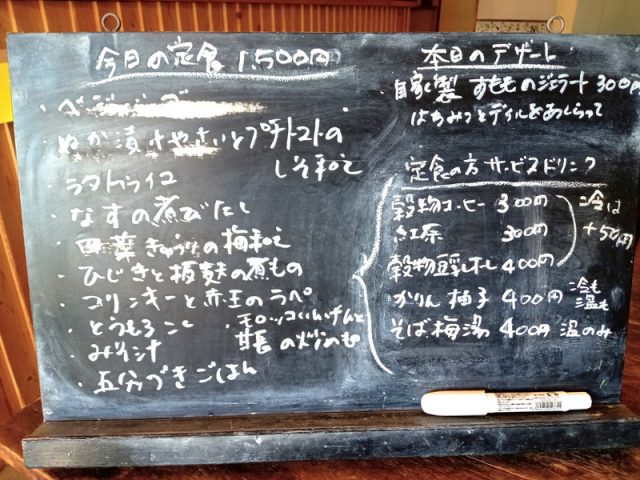 今日の定食 1,500円
・ベジ
・ぬか漬けやさいとプチトマトの
しそ和え
ラタトゥイユ
・なすの煮びたし
・四葉きゅうりの梅和え
・ひじきと板麩の煮もの
・コリンキーと赤玉のラペ
・とうもろこし
・モロッコいんげんと
甘長の炒めもの
・みそ汁
・五分づきごはん
本日のデザート
自家製 すもものジェラート 300円
はちみつとディルをあしらって
定食の方 サービスドリンク
穀物コーヒー 300円
紅茶 300円
穀物豆乳オレ 400円
冷は
+50円
かりん柚子 400円 冷も
温も
そば梅湯 400円 温のみ